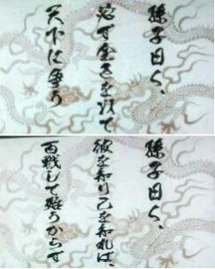 孫子曰く、
必ず全きを以て
天下に争う
孫子曰く、
彼を知り己を知れば、
百戦して殆うからず